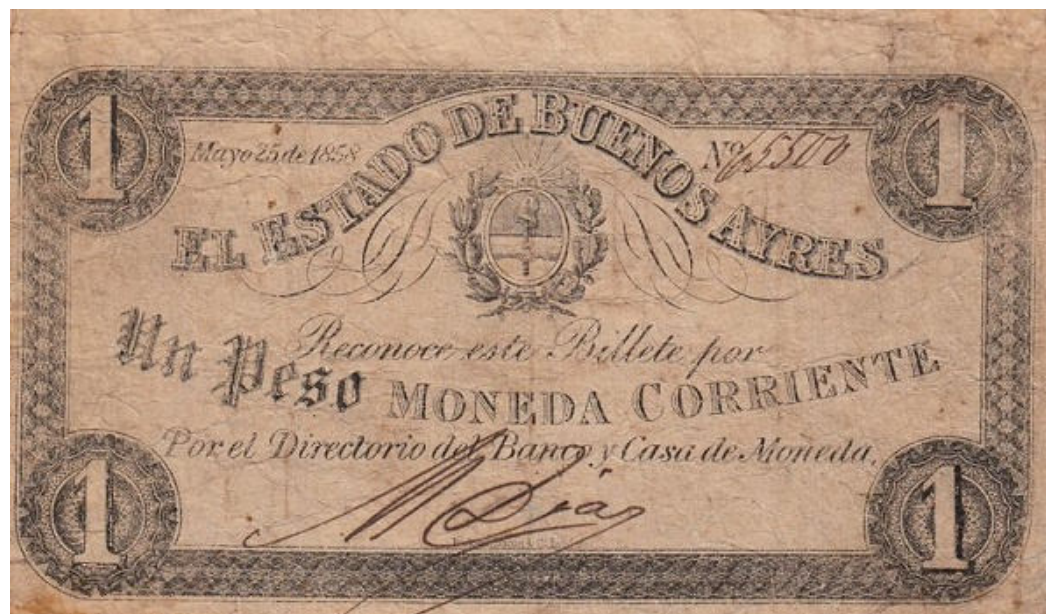 1 1
Mayo 25 de 1858 Nº 65500
EL ESTADO DE BUENOS AYRES
Reconoce este Billete por
Un Peso MONEDA CORRIENTE
Por el Directorio del Banco y Casa de Moneda.
M Diaz
1 1